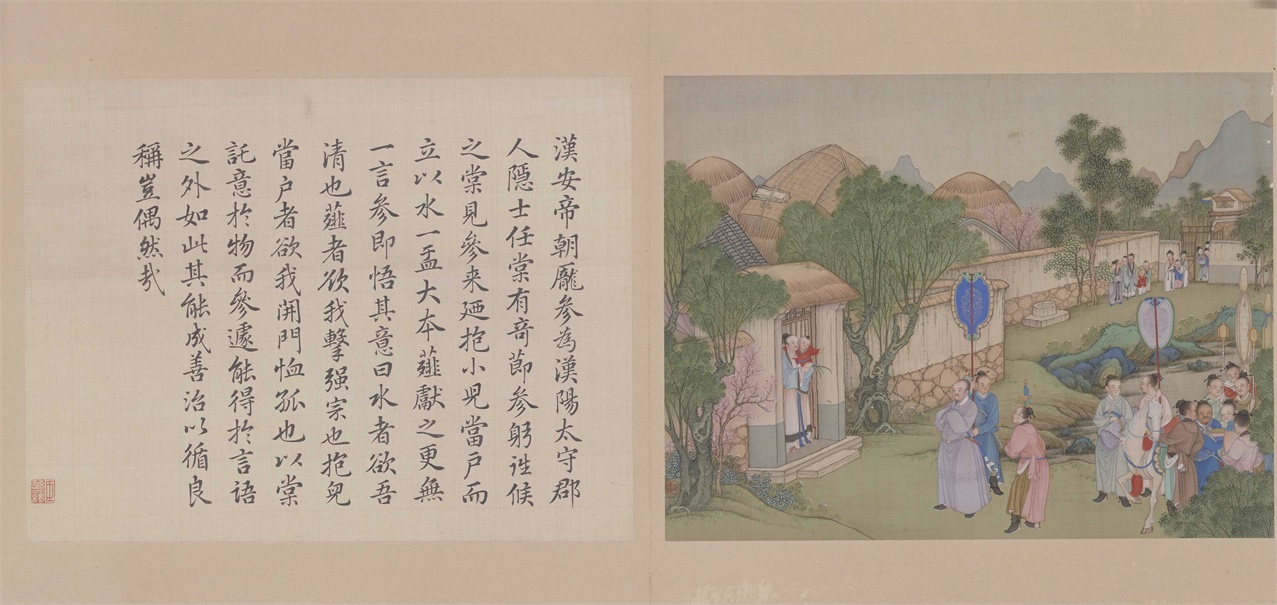 漢安帝朝龐參為漢陽太守郡
人隱士任棠有奇節參躬詣候
之棠見參来廼抱小兒當戶而
立以水一盂大本薤獻之更無
一言參即悟其意曰水者欲吾
清也薤者欲我擊强宗也抱兒
當户者欲我開門恤孤也以棠
託意於物而參遽能得於言語
之外如此其能成善治以循良
稱豈偶然哉